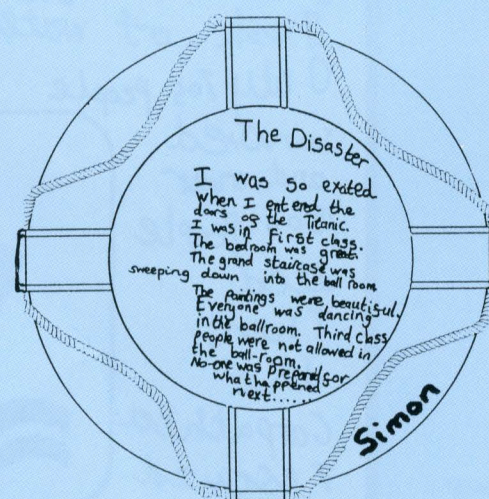 The Disaster
I was so exited
when I entered the
doors of the Titanic.
I was in first class.
The bedroom was great.
The grand staircase was
sweeping down into the ball room
The paintings were beautiful.
Everyone was dancing
in the ballroom. Third class
people were not allowed in
the ball-room.
No-one was prepared for
what happened
next......
Simon